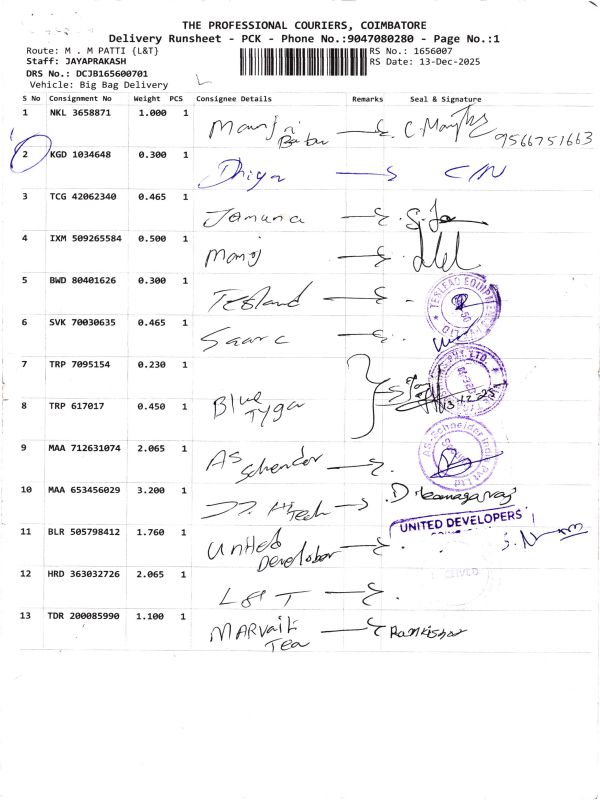 THE PROFESSIONAL COURIERS, COIMBATORE
Delivery Runsheet - PCK - Phone No.:9047080280 - Page No.:1
Route: M . M PATTI {L&T}
RS No.: 1656007
Staff: JAYAPRAKASH
RS Date: 13-Dec-2025
DRS No.: DCJB165600701
Vehicle: Big Bag Delivery
S No Consignment No Weight PCS Consignee Details Remarks Seal & Signature
1 NKL 3658871 1.000 1 Babu 9566751663
2 KGD 1034648 0.300 1 Dhiya
3 TCG 42062340 0.465 1 Jamuna
4 IXM 509265584 0.500 1 Manoj
5 BWD 80401626 0.300 1
6 SVK 70030635 0.465 1
7 TRP 7095154 0.230 1
8 TRP 617017 0.450 1 Blue Tyga
9 MAA 712631074 2.065 1 AS AS-Schneider India Pvt Ltd
10 MAA 653456029 3.200 1
11 BLR 505798412 1.760 1 United UNITED DEVELOPERS
12 HRD 363032726 2.065 1 L&T
13 TDR 200085990 1.100 1 Tea